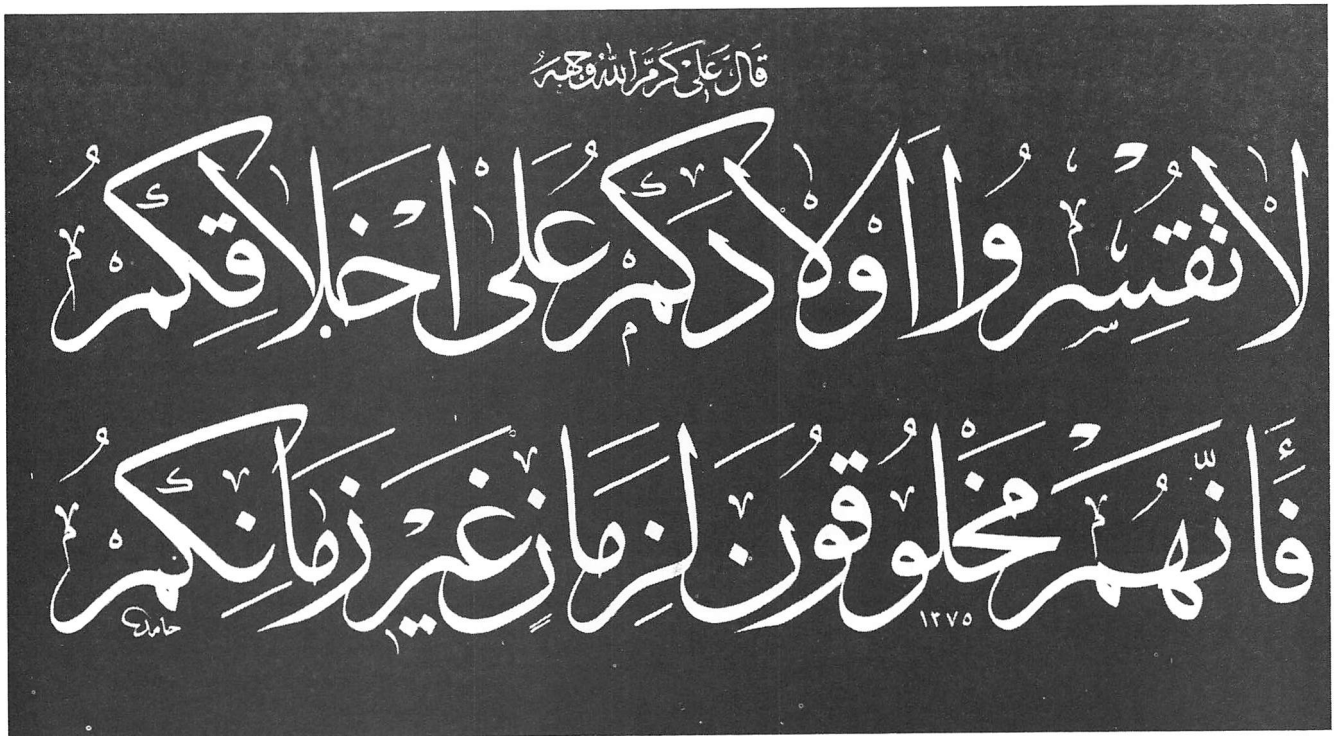 قَالَ عَلِيٌّ كَرَّمَ اللّٰهُ وَجْهَهُ
لَا تَقْسِرُوا اَوْلَادَكُمْ عَلٰى اَخْلَاقِكُمْ
فَأَنَّهُمْ مَخْلُوقُونَ لِزَمَانٍ غَيْرِ زَمَانِكُمْ
١٣٧٥
حامد